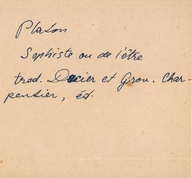 Platon
Sophiste ou de l'être
trad. Dacier et Grou. Char-
pentier, éd.